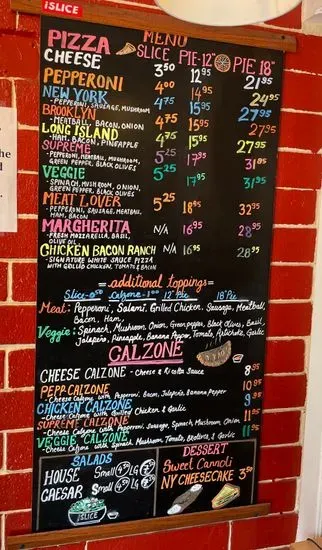 iSLICE
MENU
PIZZA SLICE PIE-12" PIE 18"
CHEESE 3.50 12.95 21.95
PEPPERONI 4.00 14.95 24.95
NEW YORK 4.75 15.95 27.95
- PEPPERONI, SAUSAGE, MUSHROOM
BROOKLYN 4.75 15.95 27.95
- MEATBALL, BACON, ONION
LONG ISLAND 4.75 15.95 27.95
- HAM, BACON, PINEAPPLE
SUPREME 5.25 17.95 31.95
- PEPPERONI, MEATBALL, MUSHROOM,
GREEN PEPPER, BLACK OLIVES
VEGGIE 5.25 17.95 31.95
- SPINACH, MUSHROOM, ONION,
GREEN PEPPER, BLACK OLIVES
MEAT LOVER 5.25 18.95 32.95
- PEPPERONI, SAUSAGE, MEATBALL,
HAM, BACON
MARGHERITA N/A 16.95 28.95
- FRESH MOZZARELLA, BASIL,
OLIVE OIL
CHICKEN BACON RANCH N/A 16.95 28.95
- SIGNATURE WHITE SAUCE PIZZA
WITH GRILLED CHICKEN, TOMATO & BACON
= additional toppings =
Slice- Calzone- 12" Pie 18" Pie
Meat: Pepperoni, Salami, Grilled Chicken, Sausage, Meatball,
Bacon, Ham,
Veggie: Spinach, Mushroom, Onion, Green pepper, Black Olives, Basil,
Jalapeño, Pineapple, Banana Pepper, Tomato, Artichoke, Garlic
CALZONE
CHEESE CALZONE - Cheese & Ricotta Sauce 8.95
PEPR CALZONE 10.95
- Cheese Calzone with Pepperoni, Bacon, Jalapeño, Banana Pepper
CHICKEN CALZONE 9.95
- Cheese Calzone with Grilled Chicken & Garlic
SUPREME CALZONE 11.95
- Cheese Calzone with Pepperoni, Sausage, Spinach, Mushroom, Onion
VEGGIE CALZONE 11.95
- Cheese Calzone with Spinach, Mushroom, Tomato, & Garlic
SALADS
HOUSE Small LG
CAESAR Small LG
iSLICE
DESSERT
Sweet Cannoli
NY CHEESECAKE 3.50
the